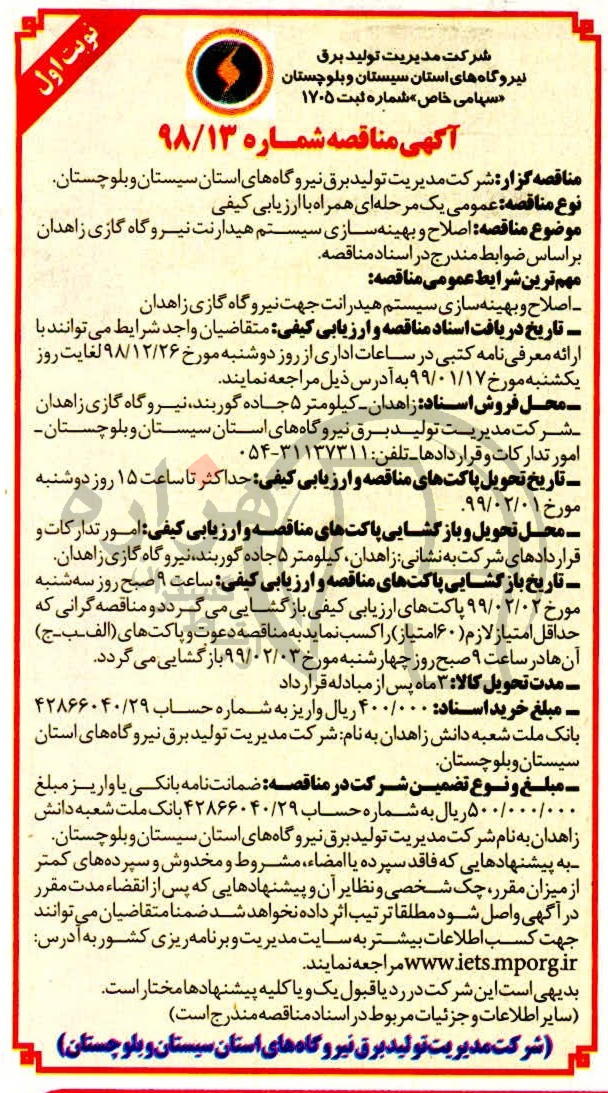 نوبت اول
شرکت مدیریت تولید برق
نیروگاه‌های استان سیستان و بلوچستان
«سهامی خاص» شماره ثبت ۱۷۰۵
آگهی مناقصه شماره ۹۸/۱۳
مناقصه گزار: شرکت مدیریت تولید برق نیروگاه‌های استان سیستان و بلوچستان.
نوع مناقصه: عمومی یک مرحله‌ای همراه با ارزیابی کیفی
موضوع مناقصه: اصلاح و بهینه‌سازی سیستم هیدارنت نیروگاه گازی زاهدان
بر اساس ضوابط مندرج در اسناد مناقصه.
مهم‌ترین شرایط عمومی مناقصه:
ـ اصلاح و بهینه‌سازی سیستم هیدرانت جهت نیروگاه گازی زاهدان
ـ تاریخ دریافت اسناد مناقصه و ارزیابی کیفی: متقاضیان واجد شرایط می‌توانند با
ارائه معرفی‌نامه کتبی در ساعات اداری از روز دوشنبه مورخ ۹۸/۱۲/۲۶ لغایت روز
یکشنبه مورخ ۹۹/۰۱/۱۷ به آدرس ذیل مراجعه نمایند.
ـ محل فروش اسناد: زاهدان ـ کیلومتر ۵ جاده گوربند، نیروگاه گازی زاهدان
ـ شرکت مدیریت تولید برق نیروگاه‌های استان سیستان و بلوچستان ـ
امور تدارکات و قراردادها ـ تلفن: ۳۱۱۳۷۳۱۱-۰۵۴
ـ تاریخ تحویل پاکت‌های مناقصه و ارزیابی کیفی: حداکثر تا ساعت ۱۵ روز دوشنبه
مورخ ۹۹/۰۲/۰۱.
ـ محل تحویل و بازگشایی پاکت‌های مناقصه و ارزیابی کیفی: امور تدارکات و
قراردادهای شرکت به نشانی: زاهدان، کیلومتر ۵ جاده گوربند، نیروگاه گازی زاهدان.
ـ تاریخ بازگشایی پاکت‌های مناقصه و ارزیابی کیفی: ساعت ۹ صبح روز سه‌شنبه
مورخ ۹۹/۰۲/۰۲ پاکت‌های ارزیابی کیفی بازگشایی می‌گردد و مناقصه‌گرانی که
حداقل امتیاز لازم (۶۰ امتیاز) را کسب نماید به مناقصه دعوت و پاکت‌های (الف ـ ب ـ ج)
آن‌ها در ساعت ۹ صبح روز چهارشنبه مورخ ۹۹/۰۲/۰۳ بازگشایی می‌گردد.
ـ مدت تحویل کالا: ۳ ماه پس از مبادله قرارداد
ـ مبلغ خرید اسناد: ۴۰۰/۰۰۰ ریال واریز به شماره حساب ۴۲۸۶۶۰۴۰/۲۹
بانک ملت شعبه دانش زاهدان به نام: شرکت مدیریت تولید برق نیروگاه‌های استان
سیستان و بلوچستان.
ـ مبلغ و نوع تضمین شرکت در مناقصه: ضمانت‌نامه بانکی یا واریز مبلغ
۵۰۰/۰۰۰/۰۰۰ ریال به شماره حساب ۴۲۸۶۶۰۴۰/۲۹ بانک ملت شعبه دانش
زاهدان به نام شرکت مدیریت تولید برق نیروگاه‌های استان سیستان و بلوچستان.
ـ به پیشنهادهایی که فاقد سپرده یا امضاء، مشروط و مخدوش و سپرده‌های کمتر
از میزان مقرر، چک شخصی و نظایر آن و پیشنهادهایی که پس از انقضاء مدت مقرر
در آگهی واصل شود مطلقا ترتیب اثر داده نخواهد شد ضمنا متقاضیان می‌توانند
جهت کسب اطلاعات بیشتر به سایت مدیریت و برنامه‌ریزی کشور به آدرس:
www.iets.mporg.ir مراجعه نمایند.
بدیهی است این شرکت در رد یا قبول یک و یا کلیه پیشنهادها مختار است.
(سایر اطلاعات و جزئیات مربوط در اسناد مناقصه مندرج است)
(شرکت مدیریت تولید برق نیروگاه‌های استان سیستان و بلوچستان)